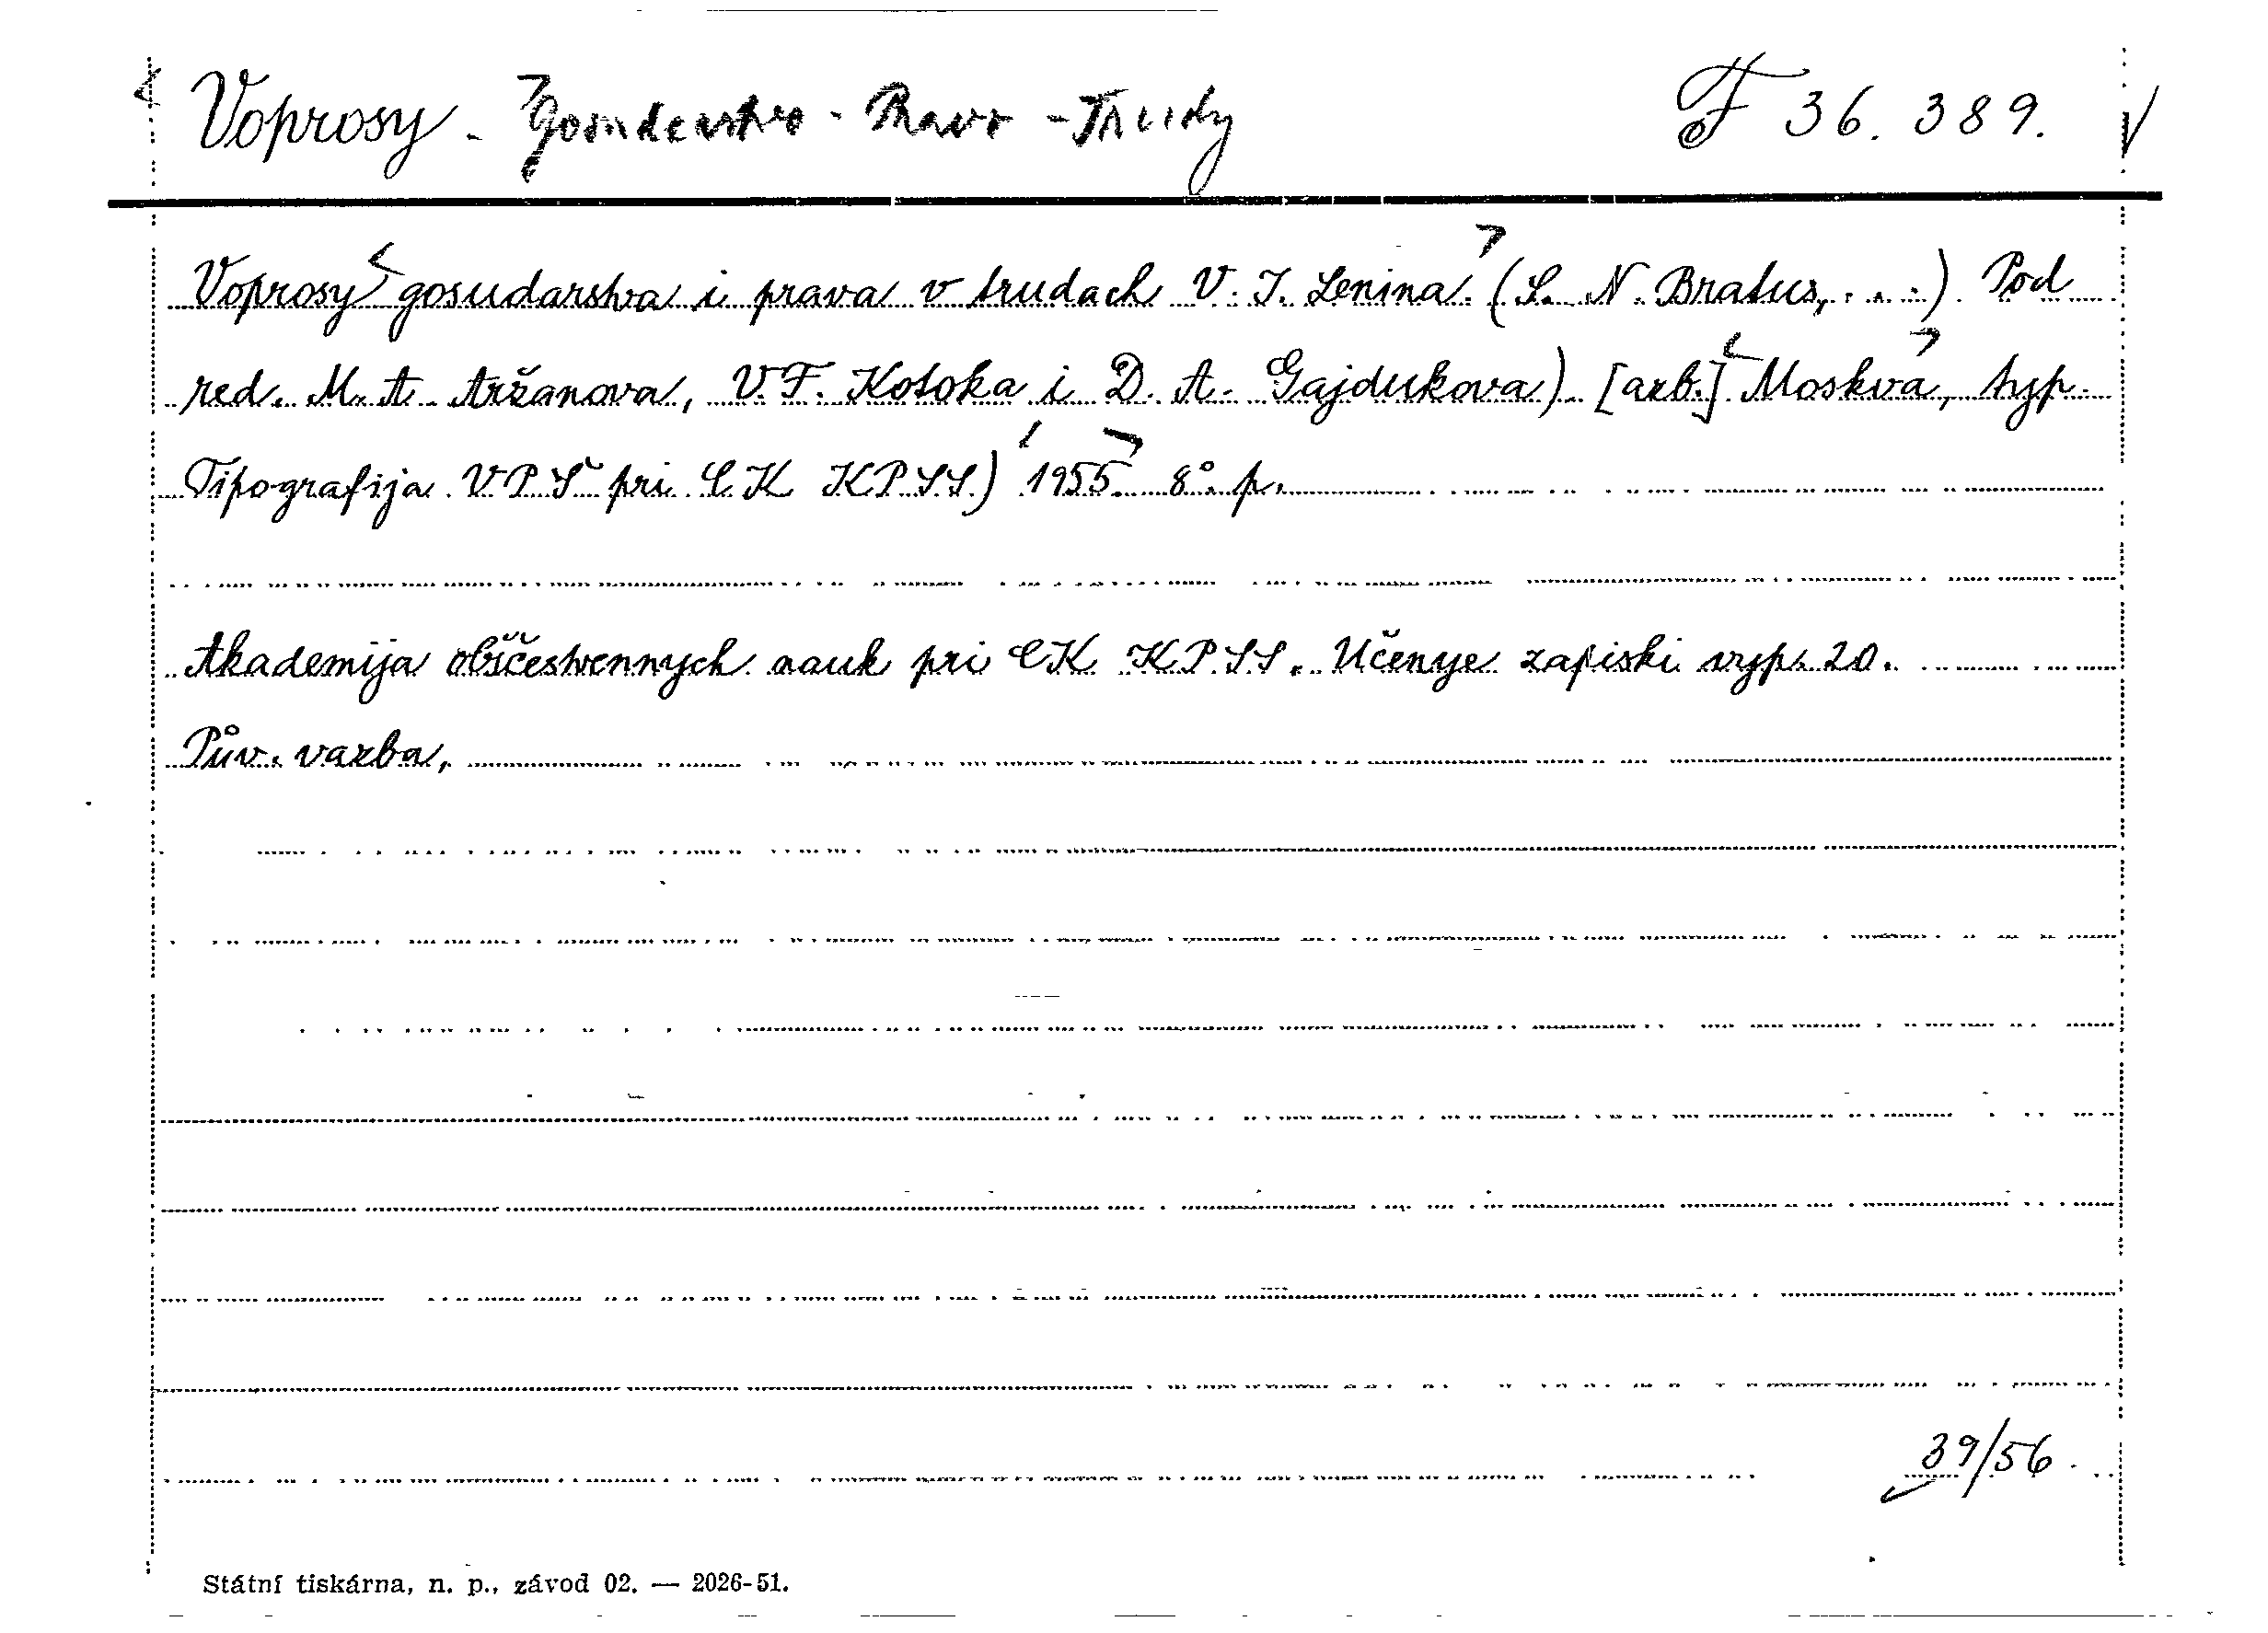 Voprosy - Gosudarstvo - Pravo - Trudy F 36.389.
Voprosy gosudarstva i prava v trudach V. I. Lenina. (S. N. Bratus, . . .) Pod
red. M. A. Aržanova, V. F. Kotoka i D. A. Gajdukova). [azb.] Moskva, typ.
Tipografija VPŠ pri CK KPSS) 1955. 8°. p.
Akademija obščestvennych nauk pri CK KPSS. Učenye zapiski vyp. 20.
Pův. vazba.
39/56.
Státní tiskárna, n. p., závod 02. — 2026-51.